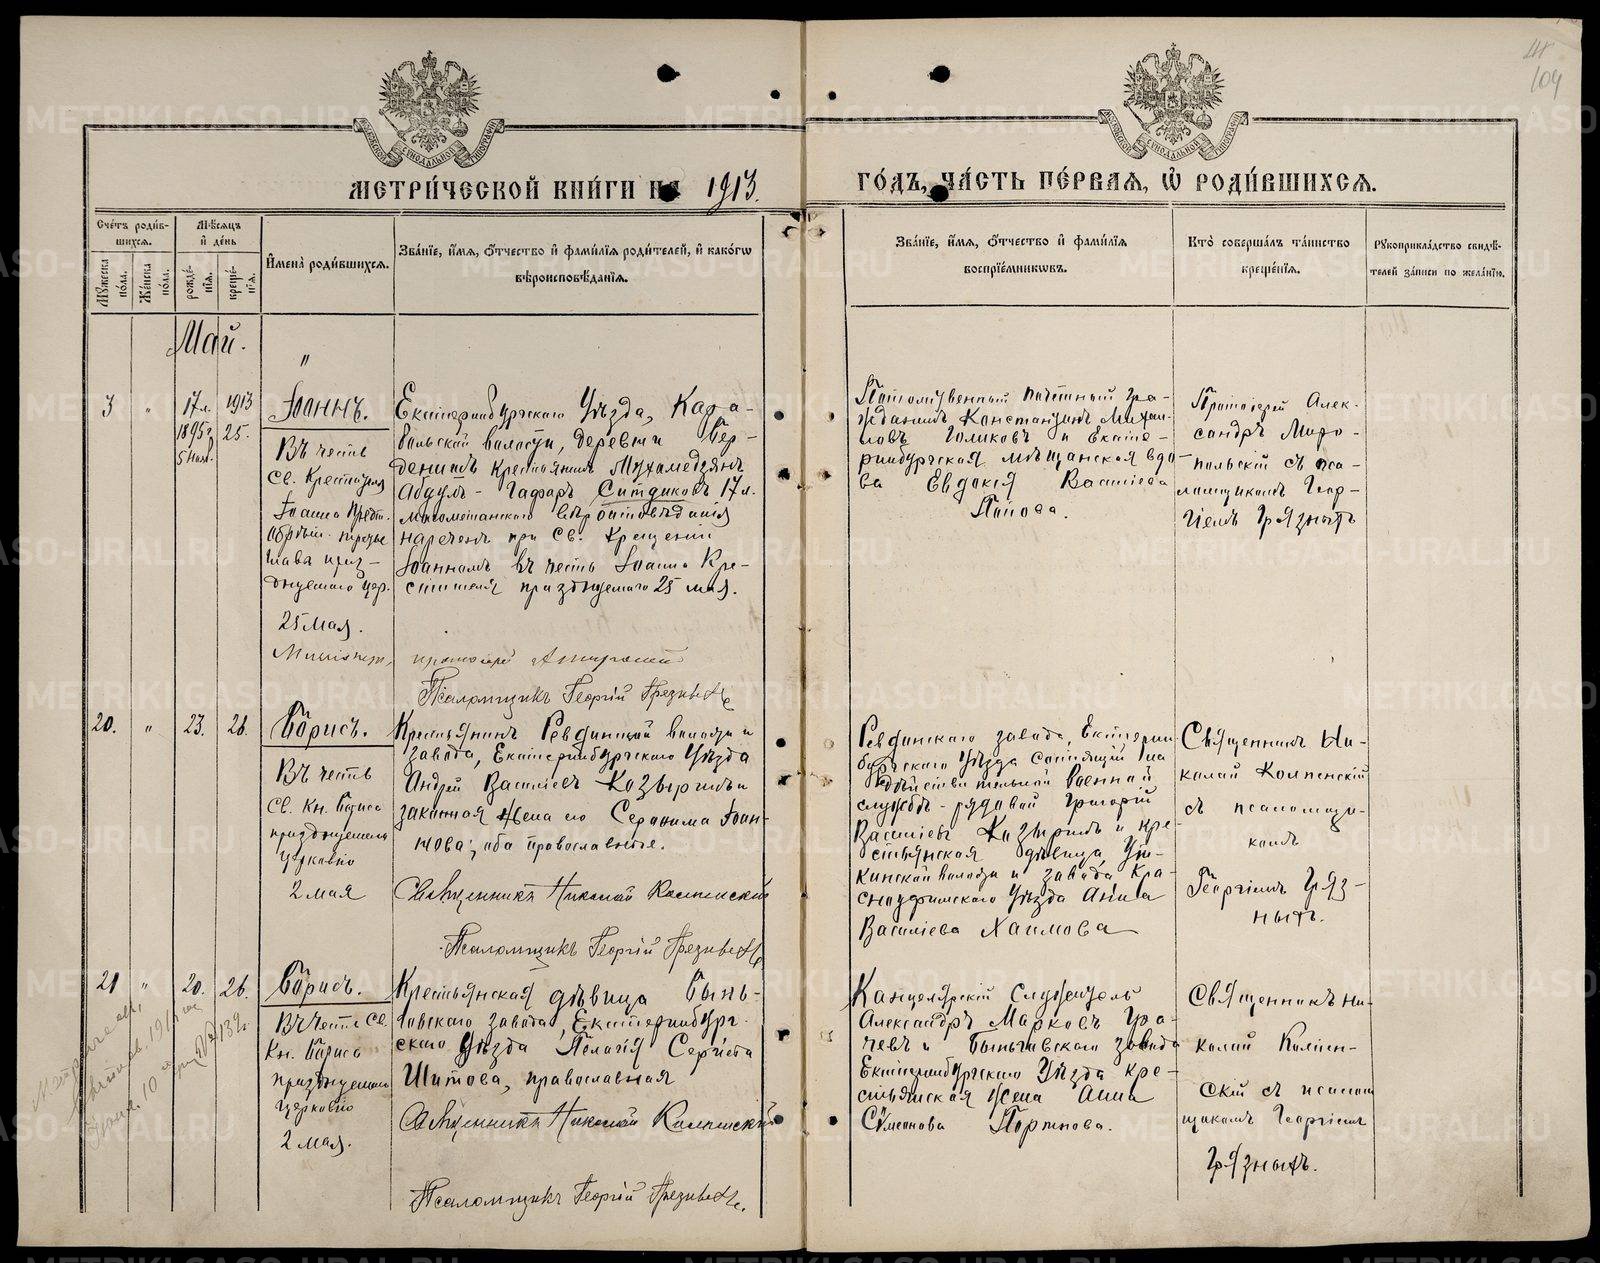 МЕТРИ́ЧЕСКОЙ КНИ́ГИ НА 1913.
ГО́ДЪ, ЧА́СТЬ ПЕ́РВАЯ, Ѡ҆ РОДИ́ВШИХСЯ.
104
Сче́тъ роди́вшихся.
Мѣ́сяцъ и҆ де́нь
И҆мена̀ роди́вшихся.
Зва́нїе, и҆́мя, ѻ҆́тчество и҆ фами́лїя роди́телей, и҆ како́гѡ вѣроисповѣ́данїя.
Мꙋ́жеска по́ла.
Же́нска по́ла.
рожде́нїя.
креще́нїя.
Зва́нїе, и҆́мя, ѻ҆́тчество и҆ фами́лїя воспрїе́мникѡвъ.
Кто̀ соверша́лъ та́инство креще́нїя.
Рꙋкоприкла́дство свидѣ́телей за́писи по жела́нїю.
Май.
"
3 " 17 л. 1913
1895 г. 25.
5 мая.
Іоаннъ.
Въ честь
св. Крестителя
Іоанна Предт.
обрѣт.
главы празднуемаго цер.
25 мая.
Екатеринбургскаго Уѣзда,
волости, деревни
крестьянинъ Мухамедзянъ
Абдулъ-Гафаръ Ситдиковъ 17 л.
магометанскаго вѣроисповѣданія
нареченъ при Св. Крещеніи
Іоанномъ въ честь Іоанна Кре-
стителя празднуемаго 25 мая.
протоіерей
Псаломщикъ Георгій Грязныхъ
Потомственный почетный гра-
жданинъ Константинъ Михаи-
ловъ Голиковъ и Екате-
ринбургская мѣщанская вдо-
ва Евдокія Васильева
Попова.
Протоіерей Алек-
сандръ Миро-
польскій съ пса-
ломщикомъ Геор-
гіемъ Грязныхъ
20. " 23. 26.
Борисъ.
Въ честь
св. кн. Бориса
празднуемаго
церковію
2 мая
Крестьянинъ Ревдинской волости и
завода, Екатеринбургскаго Уѣзда
Андрей Васильевъ Козыринъ и
законная жена его Серафима Іоан-
нова, оба православные.
Священникъ Николай Компенскій
Псаломщикъ Георгій Грязныхъ
Ревдинскаго завода, Екатерин-
бургскаго Уѣзда состоящій на
дѣйствительной военной
службѣ - рядовой Григорій
Васильевъ Козыринъ и кре-
стьянская дѣвица Ут-
кинской волости и завода Кра-
сноуфимскаго Уѣзда Анна
Васильева Хаимова
Священникъ Ни-
колай Компенскій
съ псаломщи-
комъ
Георгіемъ Гряз-
ныхъ.
21 " 20. 26.
Борисъ.
Въ честь св.
кн. Бориса
празднуемаго
церковію
2 мая.
Крестьянская дѣвица Бынь-
говскаго завода, Екатеринбург-
скаго Уѣзда Пелагія Сергѣева
Шитова, православная
Священникъ Николай Компенскій
Псаломщикъ Георгій Грязныхъ.
Канцелярскій Служитель
Александръ Марковъ Гра-
чевъ и Быньговскаго завода
Екатеринбургскаго Уѣзда кре-
стьянская жена Анна
Симеонова Портнова.
Священникъ Ни-
колай Компен-
скій съ псалом-
щикомъ Георгіемъ
Грязныхъ.